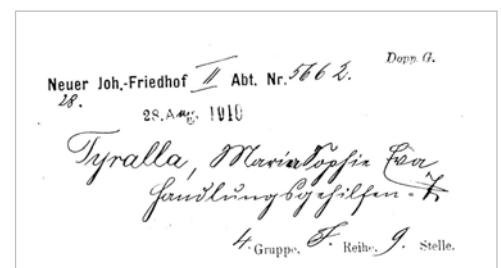 Dopp. G.
Neuer Joh.-Friedhof II Abt. Nr. 5662.
28.
28. Aug. 1910
Tyralla, Maria Sophie Eva
Handlungsgehilfen - T.
4. Gruppe, F. Reihe, 9. Stelle.